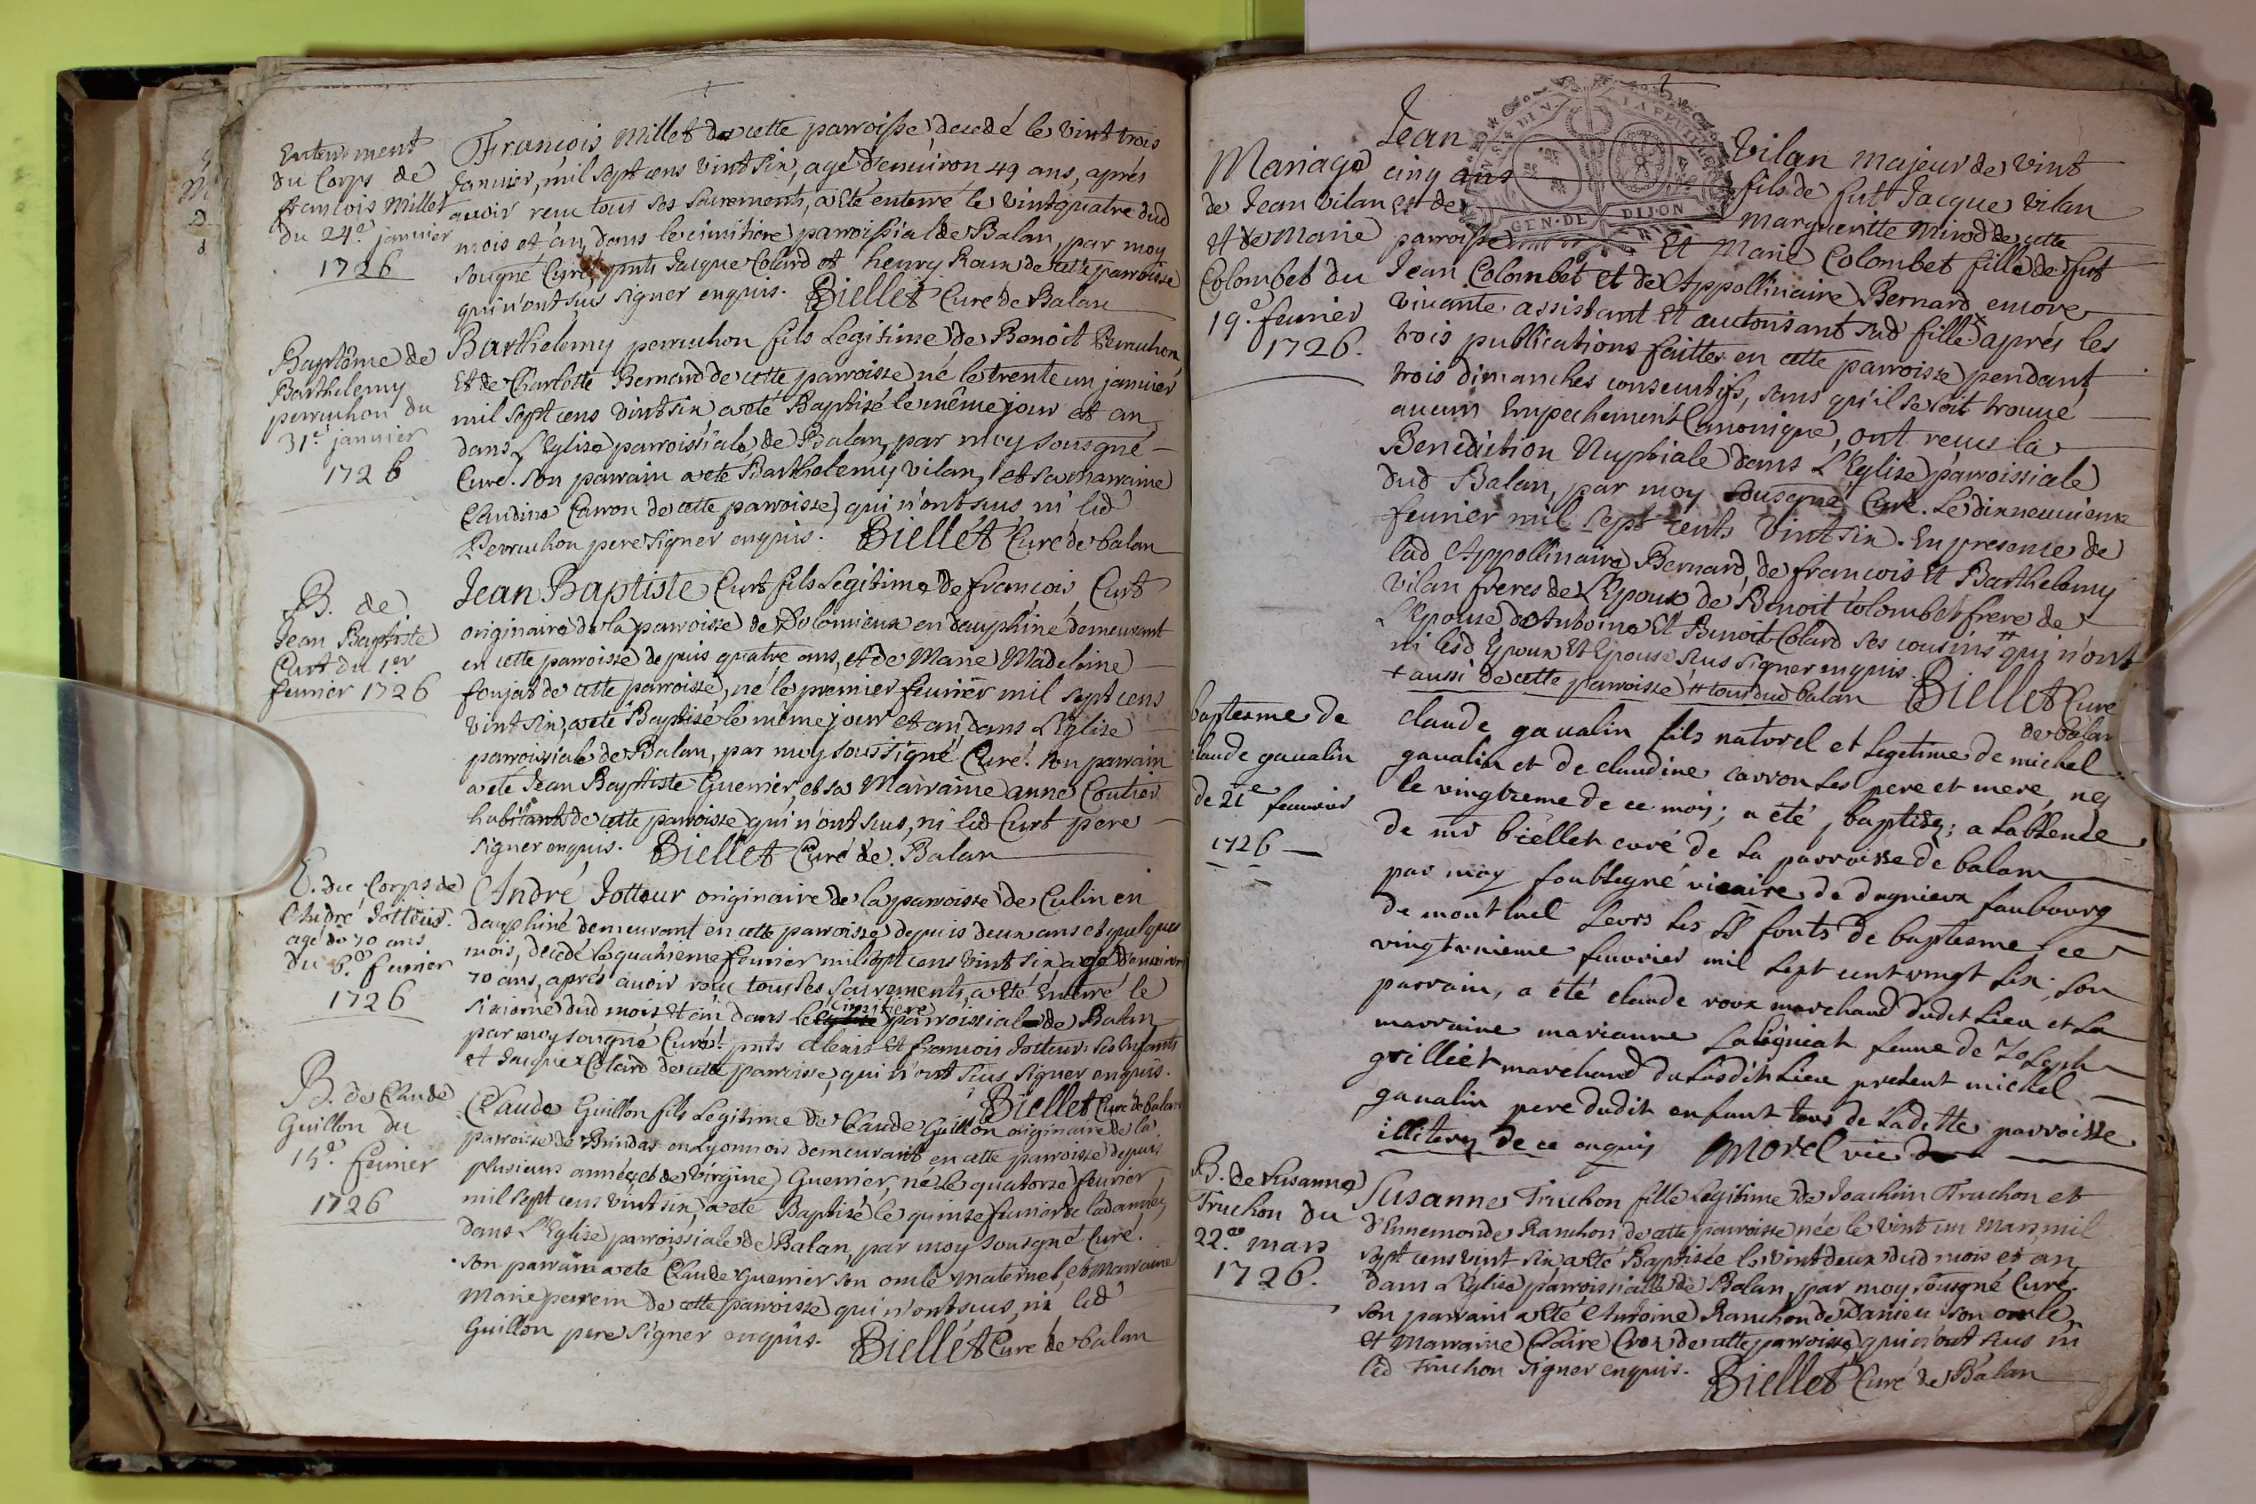 Enterrement
du Corps de
francois Millet
du 24e janvier
1726
François Millet de cette parroisse decedé le vint trois
Janvier, mil sept cens vint six, agé d'environ 49 ans, aprés
avoir reçu tous ses sacrements, a eté enterré le vintquatre dud
mois et an, dans le cimitiere parroissial de Balan, par moy
sousigné Curé, pnts Jacque Colard et henry Roux de cette parroisse
qui n'ont sus signer enquis. Biellet Curé de Balan
Baptême de
Barthelemy
perruchon du
31e janvier
1726
Barthelemy perruchon fils Legitime de Benoit Perruchon
Et de Charlotte Bernard de cette parroisse né le trente un janvier
mil sept cens vint six a eté Baptisé le même jour et an
dans L'Eglise parroissiale de Balan, par moy sousgné
Curé. son parrain a eté Barthelemy vilan, et sa marraine
Claudine Carron de cette parroisse qui n'ont sus, ni led
Perruchon pere signer enquis. Biellet Curé de balan
B. de
Jean Baptiste
Curt du 1er
fevrier 1726
Jean Baptiste Curt fils Legitime de francois Curt
originaire de la parroisse de Dolomieux en dauphiné demeurant
en cette parroisse depuis quatre ans, et de Marie Madeleine
foujat de cette parroisse, né le premier fevrier mil sept cens
vint six, a eté Baptisé le même jour et an, dans L'Eglise
parroissiale de Balan, par moy soussigné Curé. son parrain
a eté Jean Baptiste Guerrier, et sa Marraine anne Coutier
habitants de cette parroisse qui n'ont sus, ni led Curt pere
signer enquis. Biellet Curé de Balan
E. du Corps de
André Jotteur
agé de 70 ans
du 6e fevrier
1726
André Jotteur originaire de la parroisse de Culin en
dauphiné demeurant en cette parroisse depuis deux ans et quelques
mois, decedé le quatrieme fevrier mil sept cens vint six, agé d'environ
70 ans, aprés avoir reçu tous les sacrements, a eté Enterré le
sixieme dud mois et an dans le cimitiere parroissial de Balan
par moy sousgné Curé. pnts et francois Jotteur ses enfants
et Jacque Colard de cette parroisse, qui n'ont sus signer enquis.
Biellet Curé de balan
B. de Claude
Guillon du
15e fevrier
1726
Claude Guillon fils Legitime de Claude Guillon originaire de la
parroisse de Brindas en Lyonnois demeurant en cette parroisse depuis
plusieurs années, et de Virgine Guerrier, né le quatorse fevrier
mil sept cens vint six, a eté Baptisé le quinse fevrier de lad année,
dans L'Eglise parroissiale de Balan, par moy sousgné Curé.
son parrain a eté Claude Guerrier son oncle maternel, et Marraine
Marie de cette parroisse qui n'ont sus, ni led
Guillon pere signer enquis. Biellet Curé de balan
Mariage
de Jean Vilan
et de Marie
Colombet du
19e fevrier
1726.
GEN. DE DIJON
Jean Vilan majeur de vint
cinq ans fils de fut Jacque Vilan
et de Margueritte Mivod de cette
parroisse Et Marie Colombet fille de fut
Jean Colombet et de Appollinaire Bernard encore
vivante assistant et autorisant sad fille + aprés les
trois publications faittes en cette parroisse pendant
trois dimanches consecutifs, sans qu'il se soit trouvé
aucun Empechement Canonique, ont reçus la
Benediction Nuptiale dans L'Eglise parroissiale
dud Balan, par moy sousgné Curé. Le dixneuvieme
fevrier mil sept cents vint six. En presence de
lad Appollinaire Bernard, de francois et Barthelemy
Vilan freres de L'Epoux de Benoit Colombet frere de
L'Epouse, de Antoine et Benoit Colard ses cousins # qui n'ont
ni lesd Epoux et Epouse sus signer enquis.
+ aussi de cette parroisse # tous dud balan Biellet Curé
de balan
baptesme de
claude gavalin
de 21e feuvrier
1726
claude gavalin fils naturel et legetime de michel
gavalin et de claudine carron ses pere et mere, ney
le vingtieme de ce mois; a été baptisez; a labsence
de mr biellet curé de la parroisse de balan
par moy soubsigné vicaire de dagnieux faubourg
de montluel sur les sts fonts de baptesme, ce
vingtunieme feuvrier mil sept cent vingt six; son
parrain, a été claude roux marchand dudit lieu et sa
marraine marianne femme de Joseph
grilliet marchand du susdit lieu present michel
gavalin pere dudit enfant tous de ladette parroisse
illiterez de ce enquis Morel vic
B. de Susanne
Truchon du
22e mars
1726.
Susanne Truchon fille Legitime de Joachim Truchon et
d'Ennemonde Ranchon de cette parroisse née le vint un mars mil
sept cens vint six a eté Baptisée le vint deux dud mois et an
dans L'Eglise parroissialle de Balan, par moy sousgné Curé.
son parrain a eté Antoine Ranchon de Danieu son oncle,
et Marraine Claire Croz de cette parroisse qui n'ont sus ni
led Truchon signer enquis. Biellet Curé de Balan